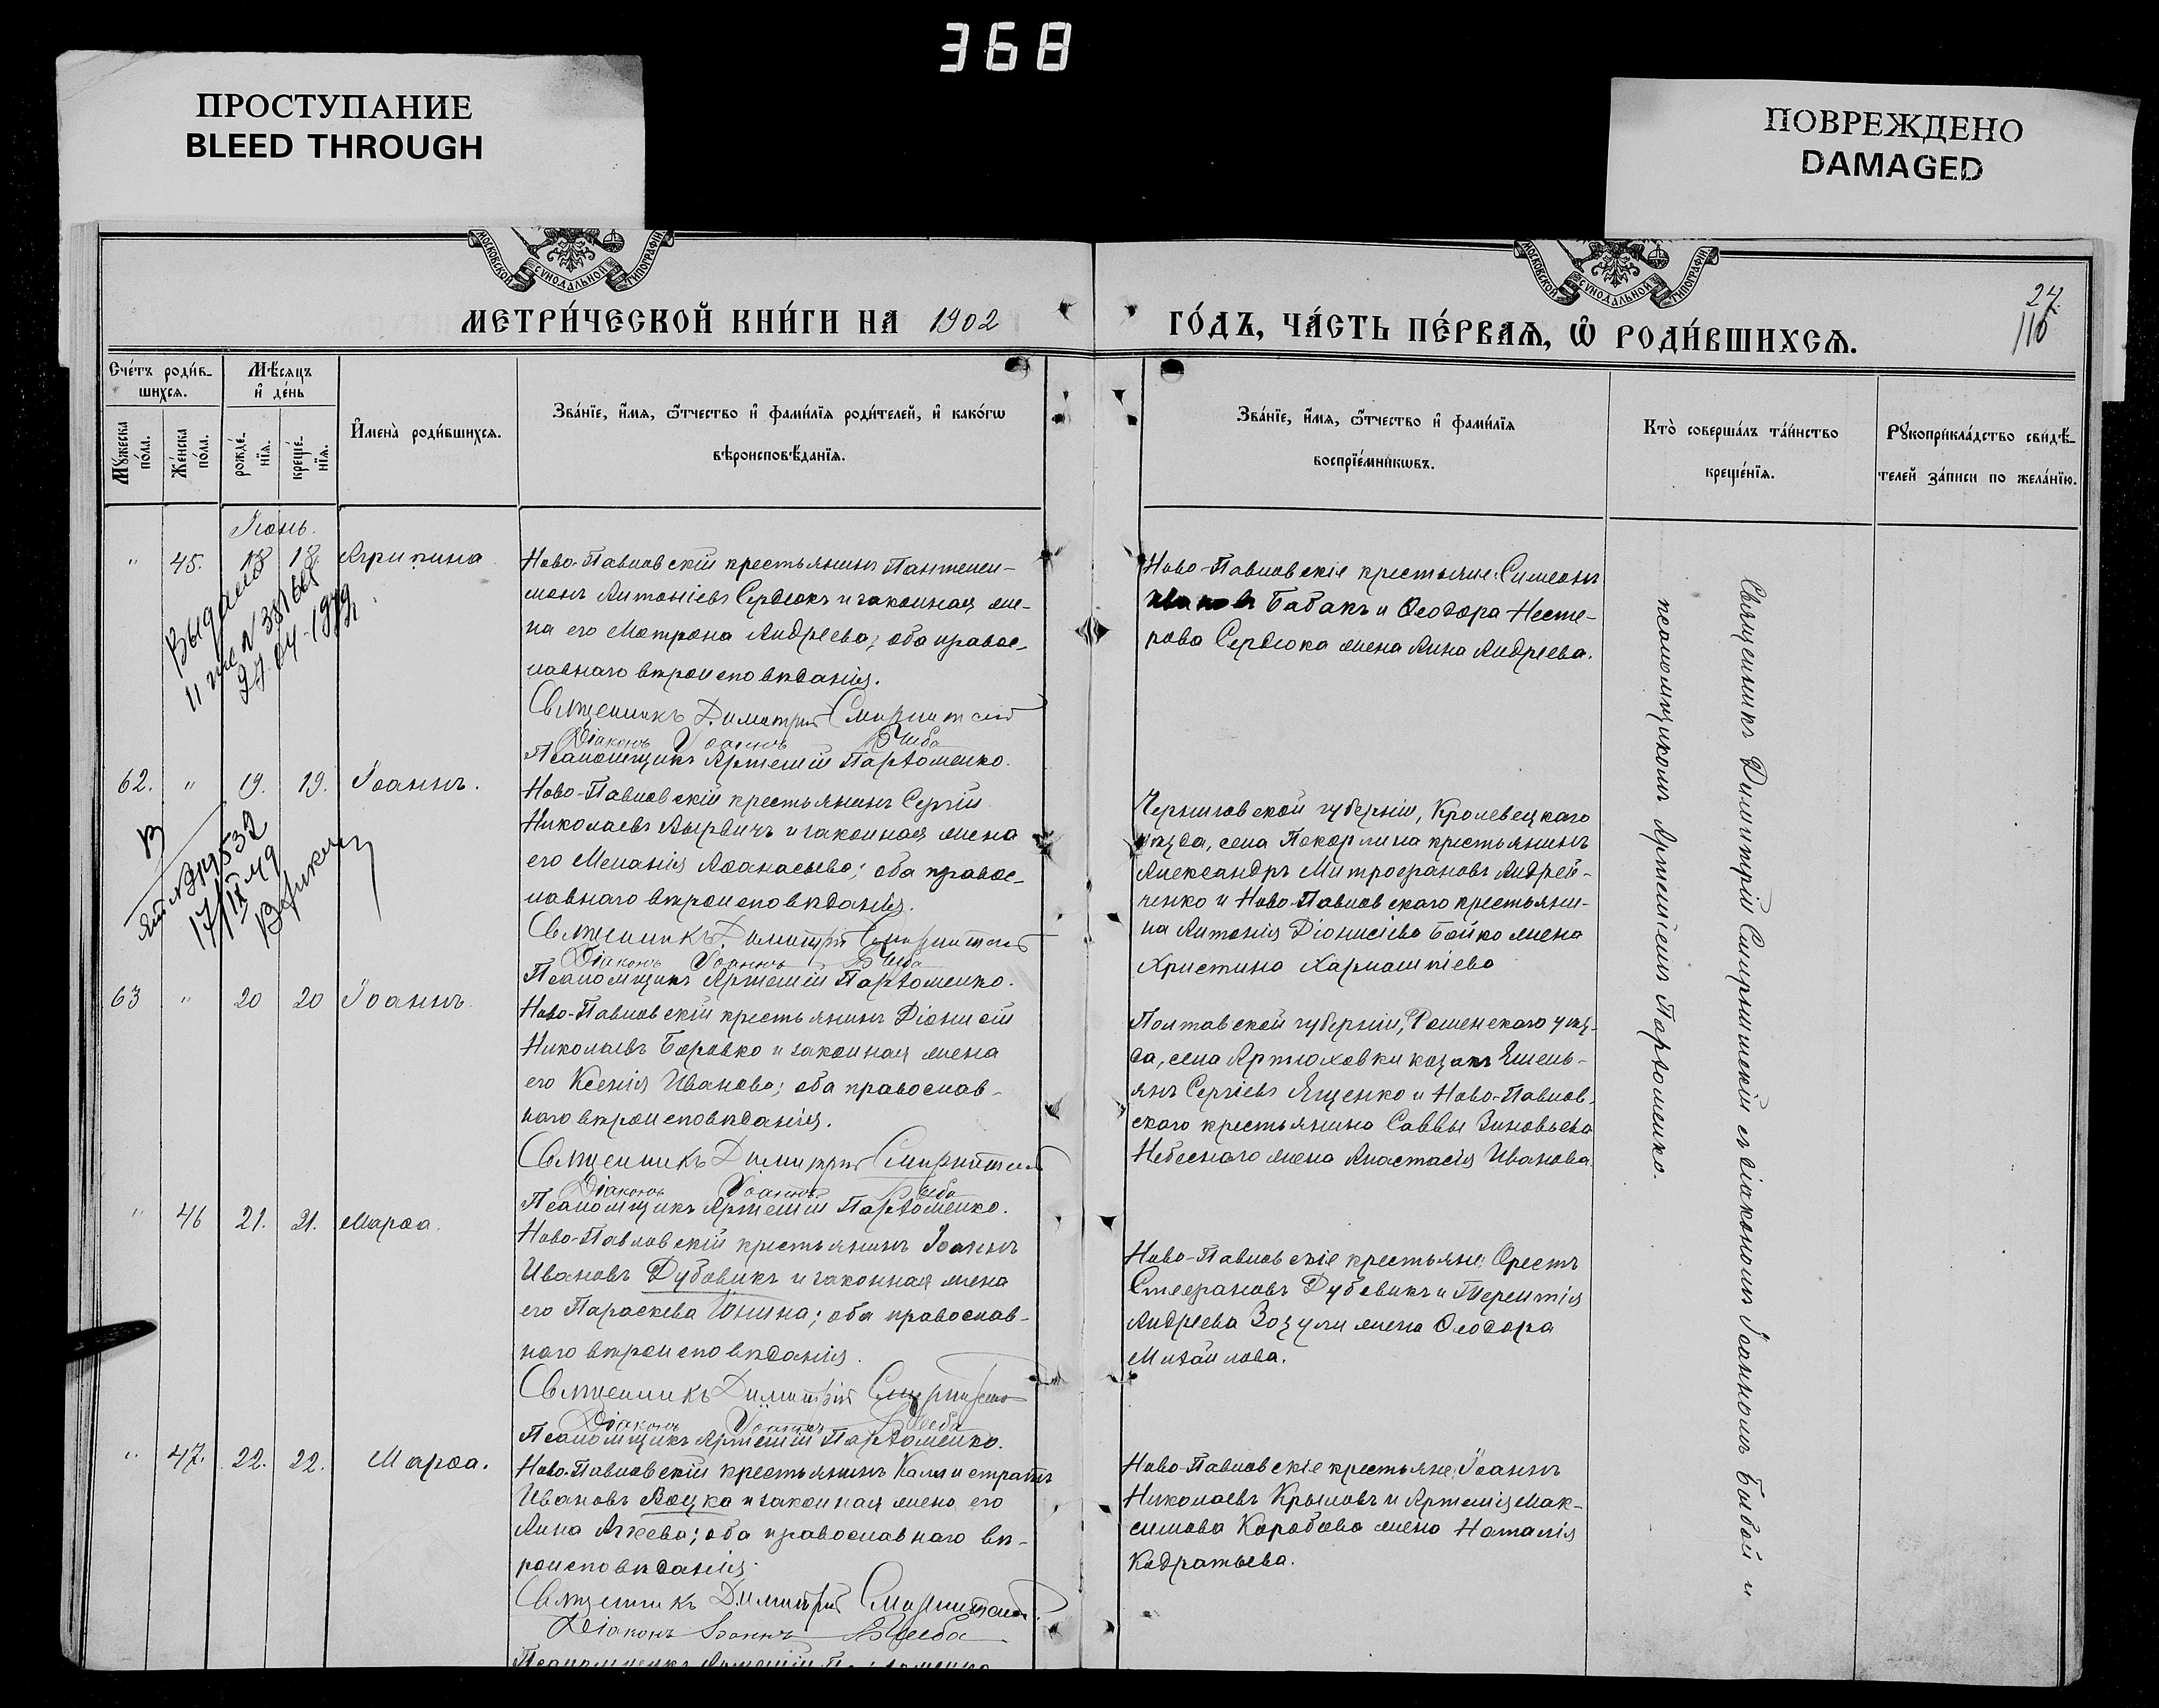 368
ПРОСТУПАНИЕ
BLEED THROUGH
ПОВРЕЖДЕНО
DAMAGED
МОСКОВСКОЙ СѴНОДАЛЬНОЙ ТИПОГРАФІИ
МОСКОВСКОЙ СѴНОДАЛЬНОЙ ТИПОГРАФІИ
МЕТРИ́ЧЕСКОЙ КНИ́ГИ НА 1902
ГО́ДЪ, ЧА́СТЬ ПЕ́РВАѦ, Ѡ҆ РОДИ́ВШИХСѦ.
24.
116
Сче́тъ роди́вшихсѧ.
Мѣ́сяцъ и҆ де́нь
Мꙋ́жеска по́ла.
Же́нска по́ла.
рожде́нїѧ.
креще́нїѧ.
И҆мена̀ роди́вшихсѧ.
Зва́нїе, и҆́мѧ, ѻ҆́тчество и҆ фами́лїѧ роди́телей, и҆ како́гѡ
вѣроисповѣ́данїѧ.
Зва́нїе, и҆́мѧ, ѻ҆́тчество и҆ фами́лїѧ
воспрїе́мникѡвъ.
Кто̀ соверша́лъ та́инство
креще́нїѧ.
Рꙋкоприкла́дство свидѣ́-
телей за́писи по жела́нїю.
Іюнь.
" 45. 18 18. Агрипина
Ново-Павловскій крестьянинъ Пантелеи-
монъ Антоніевъ Сердюкъ и законная же-
на его Матрона Андреева; оба правос-
лавнаго вѣроисповѣданія.
Священникъ Димитрій
Діаконъ Іоаннъ
Псаломщикъ Артемій Пархоменко.
Ново-Павловскіе крестьяне: Симеонъ
Бабакъ и Ѳеодора Несте-
рова Сердюка жена Анна Андреева.
Выдано
27.04-1979
62. " 19. 19. Іоаннъ.
Ново-Павловскій крестьянинъ Сергій
Николаевъ и законная жена
его Меланія Аѳанасьева; оба правос-
лавнаго вѣроисповѣданія.
Священникъ Димитрій
Діаконъ Іоаннъ
Псаломщикъ Артемій Пархоменко.
Черниговской губерніи, Кролевецкаго
уѣзда, села крестьянинъ
Александръ Митрофановъ Андрей-
ченко и Ново-Павловскаго крестьяни-
на Антонія Діонисіева Бойко жена
Христина Харлампіева
17/IX 49
63 " 20 20 Іоаннъ
Ново-Павловскій крестьянинъ Діонисій
Николаевъ Боровко и законная жена
его Ксенія Иванова; оба православ-
наго вѣроисповѣданія.
Священникъ Димитрій
Діаконъ Іоаннъ
Псаломщикъ Артемій Пархоменко.
Полтавской губерніи, Роменскаго уѣз-
да, села Артюховки козакъ Емель-
янъ Сергіевъ Ященко и Ново-Павлов-
скаго крестьянина Саввы Зиновьева
Небеснаго жена Анастасія Иванова.
" 46 21. 21. Марѳа.
Ново-Павловскій крестьянинъ Іоаннъ
Ивановъ Дубовикъ и законная жена
его Параскева; оба православ-
наго вѣроисповѣданія.
Священникъ Димитрій
Діаконъ Іоаннъ
Псаломщикъ Артемій Пархоменко.
Ново-Павловскіе крестьяне: Орестъ
Стефановъ Дубовикъ и Терентія
Андреева Зозули жена Ѳеодора
Михайлова.
" 47. 22. 22. Марѳа.
Ново-Павловскій крестьянинъ Каллистратъ
Ивановъ Воцка и законная жена его
Анна Агеева; оба православнаго вѣ-
роисповѣданія.
Священникъ Димитрій
Діаконъ Іоаннъ
Псаломщикъ Артемій Пархоменко
Ново-Павловскіе крестьяне: Іоаннъ
Николаевъ Крыловъ и Артемія Мак-
симова Коробова жена Наталія
Кодратьева.
Священникъ Димитрій съ діакономъ Іоанномъ и
псаломщикомъ Артеміемъ Пархоменко.